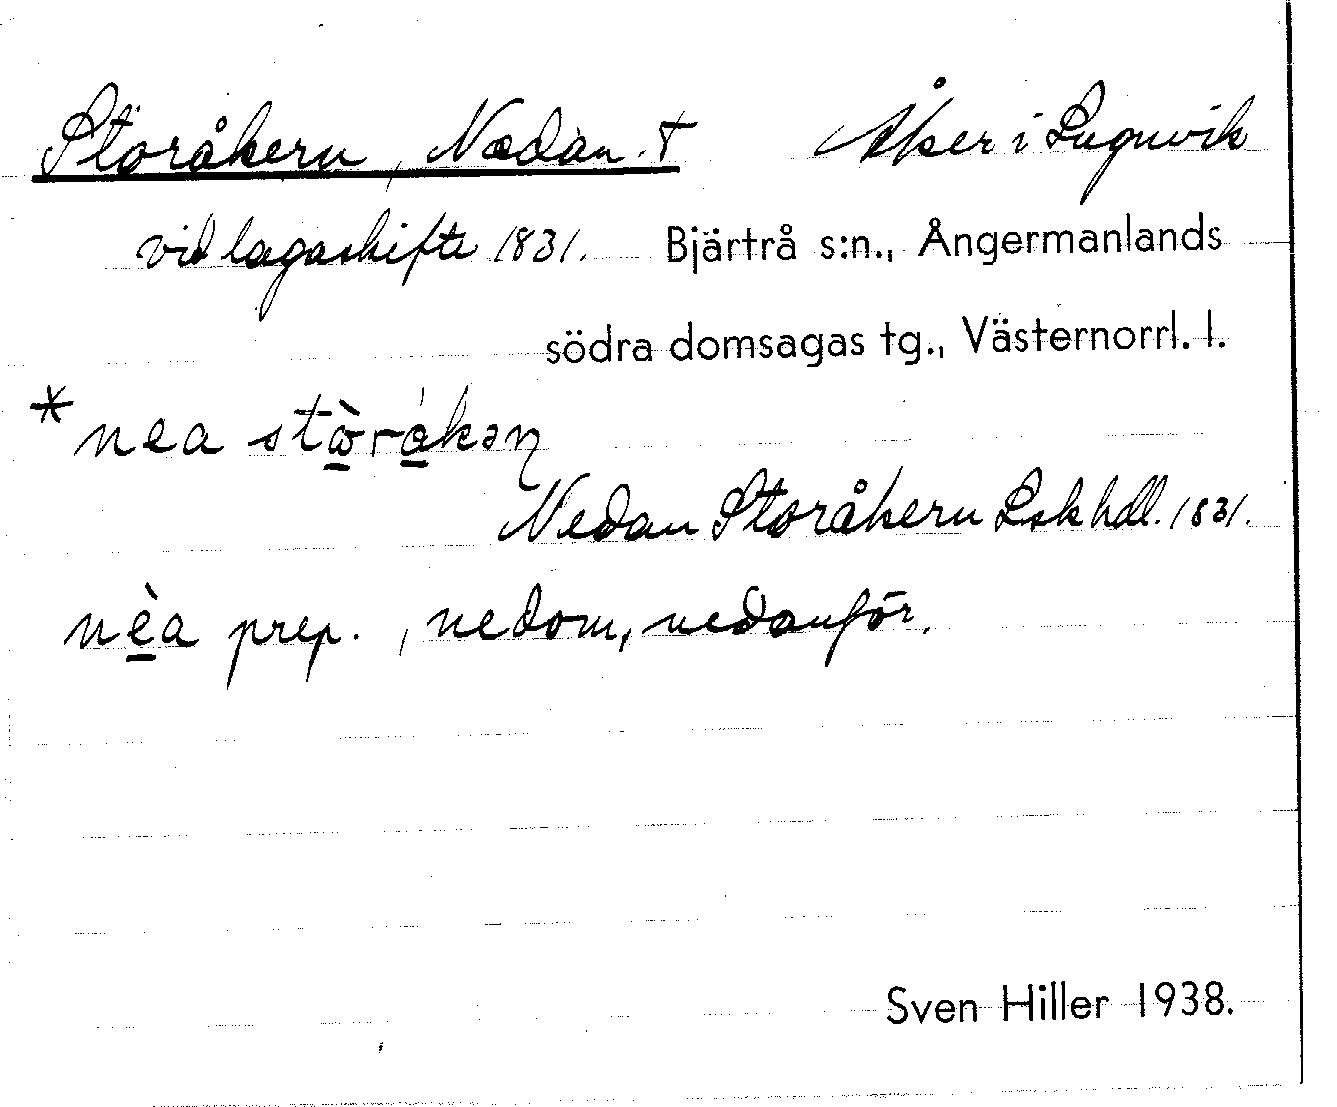 Storåkern, Nedan. † Åker i Lugnvik
vid lagaskifte 1831. Bjärtrå s:n., Ångermanlands
södra domsagas tg., Västernorrl. l.
*nea stò̱rá̱kəɳ
Nedan Storåkern Lsk hdl. 1831.
nè̱a prep., nedom, nedanför.
Sven Hiller 1938.